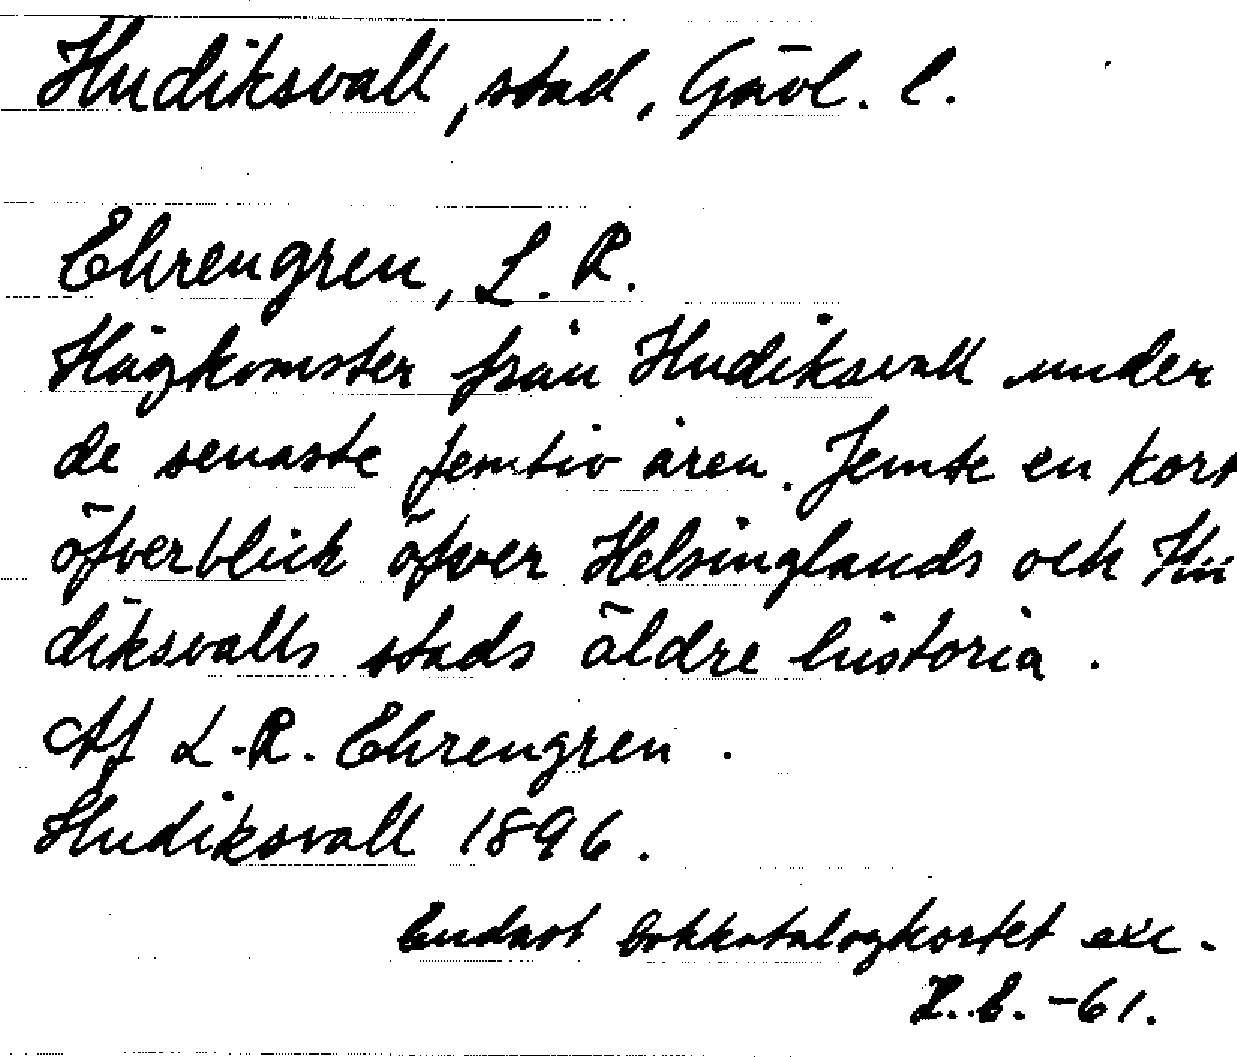 Hudiksvall, stad, Gävl. l.
Ehrengren, L. R.
Hågkomster från Hudiksvall under
de senaste femtio åren. Jemte en kort
öfverblick öfver Helsinglands och Hu
diksvalls stads äldre historia.
Af L. R. Ehrengren.
Hudiksvall 1896.
Endast bokkatalogkortet exc.
E. -61.